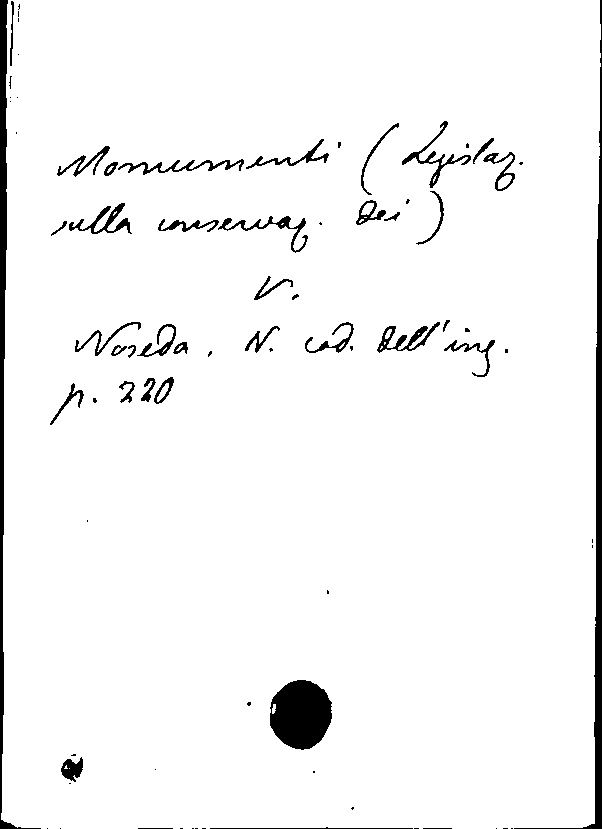 Monumenti (Legislaz.
sulla conservaz. dei)
V.
Noseda. N. cod. dell'ing.
p. 220